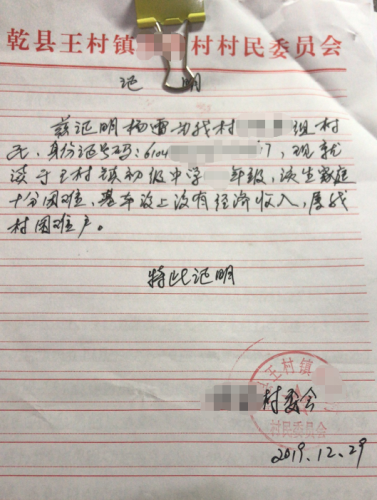 乾县王村镇 村村民委员会
证 明
兹证明杨雷为我村 组村
民,身份证号码:6104 7,现就
读于王村镇初级中学 年级,该生家庭
十分困难,基本没上没有经济收入,属我
村困难户。
特此证明
王村镇
村民委员会
村委会
2019.12.29